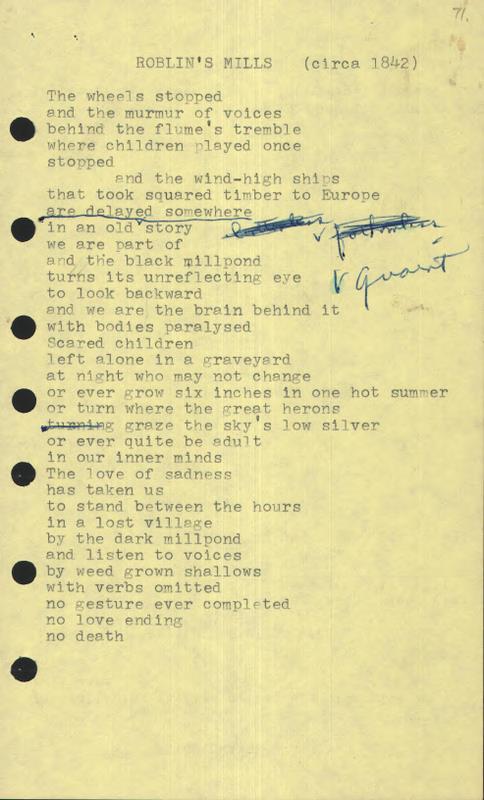 71.
ROBLIN'S MILLS (circa 1842)
The wheels stopped
and the murmur of voices
behind the flume's tremble
where children played once
stopped
and the wind-high ships
that took squared timber to Europe
are delayed somewhere
in an old story
we are part of
v quaint
and the black millpond
turns its unreflecting eye
to look backward
and we are the brain behind it
with bodies paralysed
Scared children
left alone in a graveyard
at night who may not change
or ever grow six inches in one hot summer
or turn where the great herons
turning graze the sky's low silver
or ever quite be adult
in our inner minds
The love of sadness
has taken us
to stand between the hours
in a lost village
by the dark millpond
and listen to voices
by weed grown shallows
with verbs omitted
no gesture ever completed
no love ending
no death